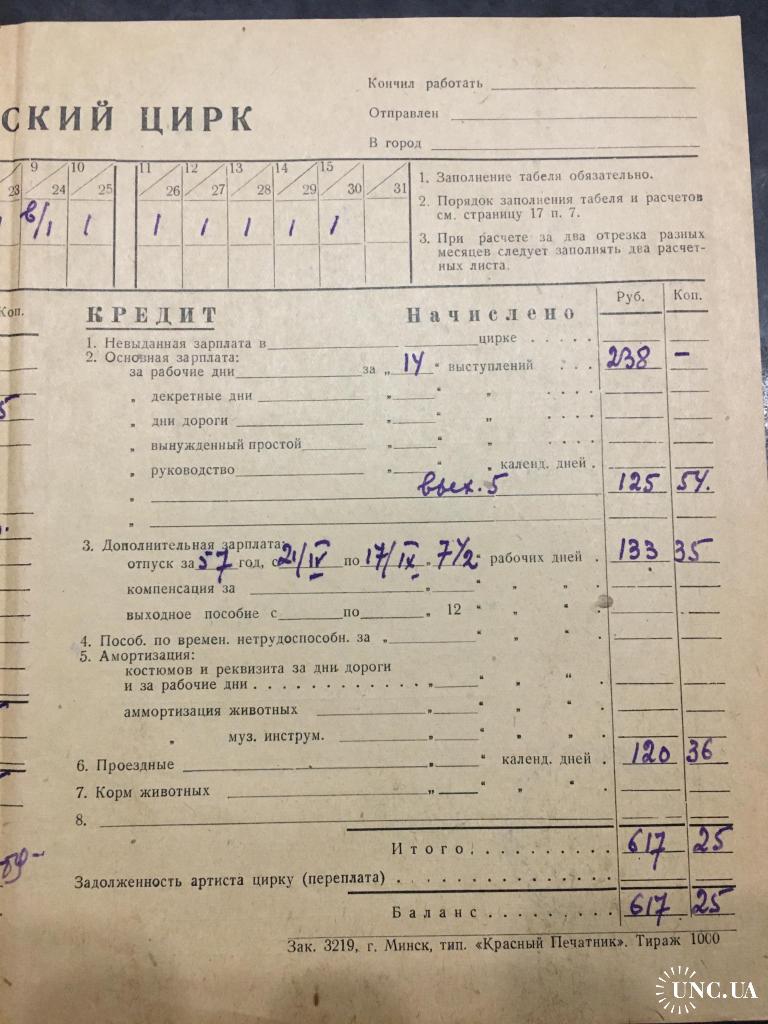 Кончил работать
СКИЙ ЦИРК
Отправлен
В город
9 10 11 12 13 14 15
23 24 25 26 27 28 29 30 31
в/1 1 1 1 1 1 1
1. Заполнение табеля обязательно.
2. Порядок заполнения табеля и расчетов
см. страницу 17 п. 7.
3. При расчете за два отрезка разных
месяцев следует заполнять два расчет-
ных листа.
Коп.
КРЕДИТ Начислено Руб. Коп.
1. Невыданная зарплата в цирке . . . . .
2. Основная зарплата:
за рабочие дни за „ 14 “ выступлений . . . 238 —
„ декретные дни „ “ „ . . . .
„ дни дороги „ “ „ . . . .
„ вынужденный простой „ “ „ . . . .
„ руководство „ “ „ календ. дней .
„ вых. 5 125 54.
„
3. Дополнительная зарплата:
отпуск за 57 год, с 21/IV по 17/IX „ 7 1/2 “ рабочих дней . 133 35
компенсация за „ “ „ “ .
выходное пособие с по „ 12 “ „ “ .
4. Пособ. по времен. нетрудоспособн. за „ “ „ “ .
5. Амортизация:
костюмов и реквизита за дни дороги
и за рабочие дни . . . . . . . . . . . . . „ “ „ “ .
аммортизация животных „ “ „ “ .
„ муз. инструм. „ “ „ “ .
6. Проездные „ “ календ. дней . 120 36
7. Корм животных „ “ „ “ .
8.
Итого . . . . . . . . . . 617 25
59-
Задолженность артиста цирку (переплата) . . . . . . . . . . . . . .
Баланс . . . . . . . . . 617 25
Зак. 3219, г. Минск, тип. «Красный Печатник». Тираж 1000
UNC.UA